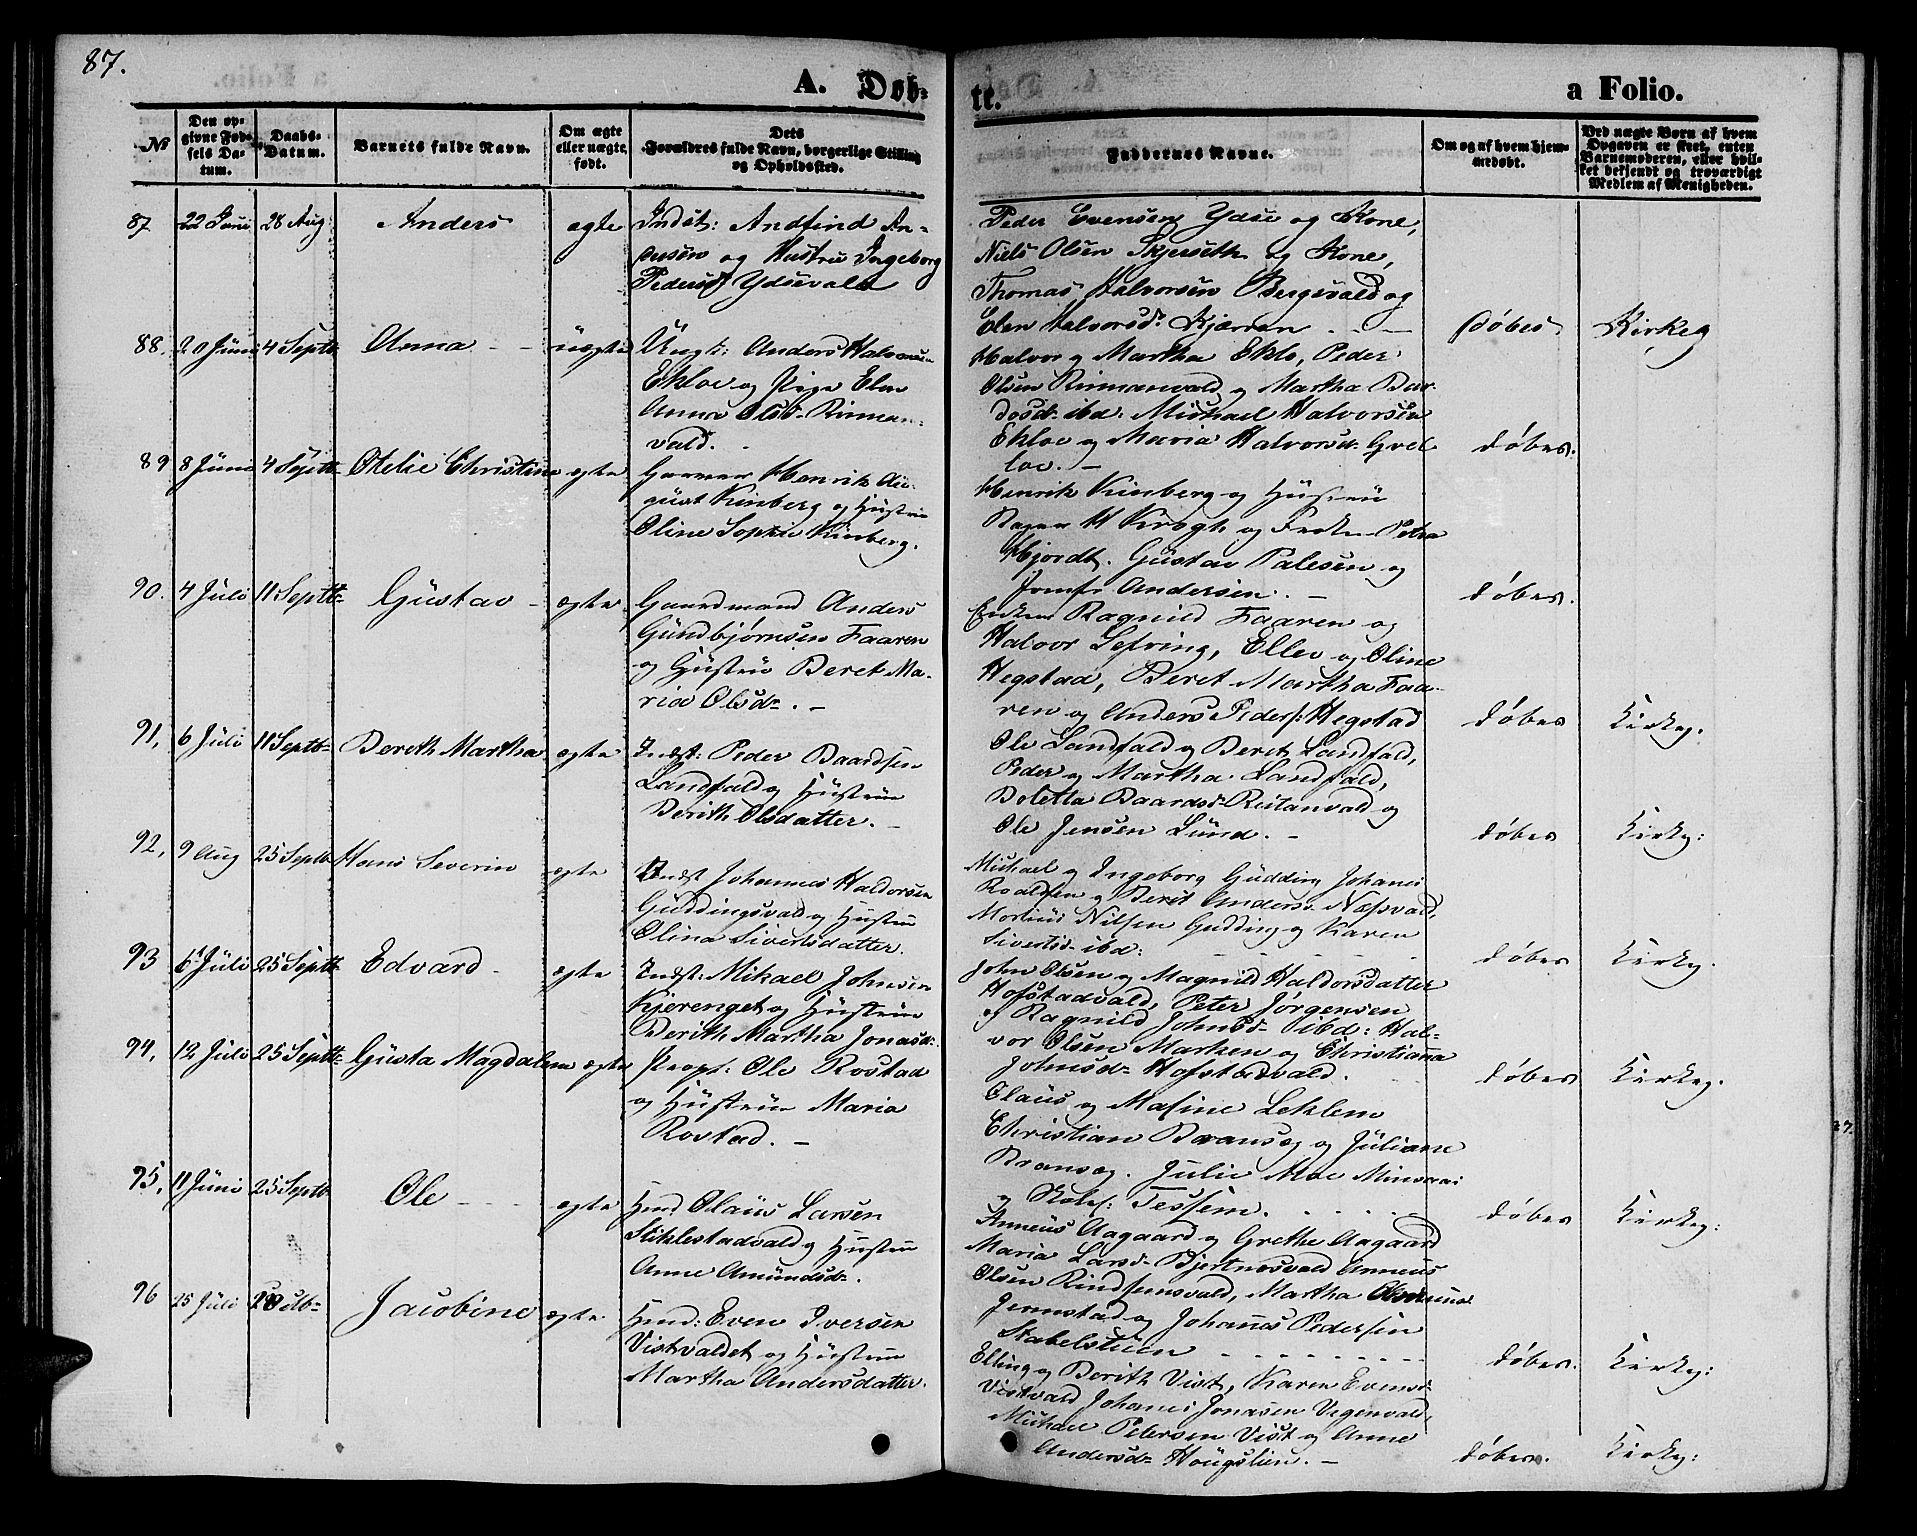 87.
A. Døb-
te.
a Folio.
№
Den op-
givne Fød-
sels Da-
tum.
Daabs-
Datum.
Barnets fulde Navn.
Om ægte
eller uægte
født.
Dets
Forældres fulde Navn, borgerlige Stilling
og Opholdssted.
Faddernes Navne.
Om og af hvem hjem-
medøbt.
Ved uægte Børn af hvem
Opgaven er skeet, enten
Barnemoderen, eller hvil-
ket bekjendt og troværdigt
Medlem af Menigheden.
87 22 Juni 28 Aug Anders ægte
Indst: Andfind An-
og Hustru Ingeborg
Pedersd Ydsevald
Peder Evensen Ydse og Kone,
Niels Olsen Skjerseth og Kone,
Thomas Halvorsen Bergsvald og
Elen Halvorsd: Kjærran
døbes Kirkeg
88. 20 Juni 4 Septb Anna uægte
Ungk: Anders Halvorsen
Ekloe og Pige Elen
Anna Olsd: Rinman-
vald.
Halvor og Martha Eklo, Peder
Olsen Rinmanvald og Martha Bar-
dosd: ibd: Michael Halvorsen
Ekloe og Maria Halvorsd:
loe.
døbes.
89 8 Juni 4 Septb Otelie Christine ægte
Henrik Au-
gust Kinberg og Hustru
Oline Sophie Kinberg.
Henrik Kinberg og Hustru
H Krogh og Petra
Hjordt. Gustav Palesen og
Jomfr Andersen.
døbes.
90. 4 Juli 11 Septb Gustav ægte
Gaardmand Anders
Gundbjørnsen Faaren
og Hustru Beret Ma-
ria Olsd:
Enken Ragnild Faaren og
Halvor Lesring, Ellev og Oline
Hegstad, Beret Martha Faa-
ren og Anders Peders: Hegstad
døbes Kirkeg.
91, 6 Juli 11 Septb Bereth Martha ægte
Indst: Peder Baardsen
Landfald og Hustru
Berith Olsdatter.
Ole Landfald og Beret Landfald,
Peder og Martha Landfald,
Boletta Baardsd: Rutanvald og
Ole Jensen Lund.
døbes Kirkeg:
92, 9 Aug 25 Septb Hans Severin ægte
Indst Johannes Haldorsen
Guddingsvald og Hustru
Olina Sivertsdatter.
Michael og Ingeborg Gudding Johanes
Roaldsen og Berit Andersd: Næssvald,
Martius Nilsen Gudding og Karen
Sivertsd: ibd:
døbes Kirkeg.
93 6 Juli 25 Septb Edvard ægte
Indst: Mikael Johnsen
Kjerenget og Hustru
Berith Martha Jonasd:
John Olsen og Magnild Haldorsdatter
Hofstadvald, Peter Jørgensen
og Ragnild Johnsd: ibd: Hal-
vor Olsen Marken og Christiana
Johnsd: Hofstadvald.
døbes Kirkeg.
94, 12 Juli 25 Septb Gusta Magdalena ægte
Ole Rostad
og Hustru Maria
Rostad.
Claus og Masine Leklem
Christian Bransæg og Juliane
Bransæg. Julie Moe
og Tessem.
døbes Kirkeg:
95, 11 Juni 25 Septb Ole ægte
Hmd Olaus Larsen
Stiklestadvald og Hustru
Anne Amundsd:
Anneus Aagaard og Grethe Aagaard
Maria Larsd: Bjertnesvald Anneus
Olsen Rindsemsvald, Martha
Jermstad og Johanes Pedersen
Stabelstuen
døbes. Kirkeg:
96 25 Juli Jacobine ægte
Hmd: Even Iversen
Vistvaldet og Hustru
Martha Andersdatter.
Elling og Berith Vist, Karen Evensd:
Vistvald Johanes Jonasen Vegenvald,
Michael Petersen Vist og Anne
Andersd: Hougslien.
døbes. Kirkeg: